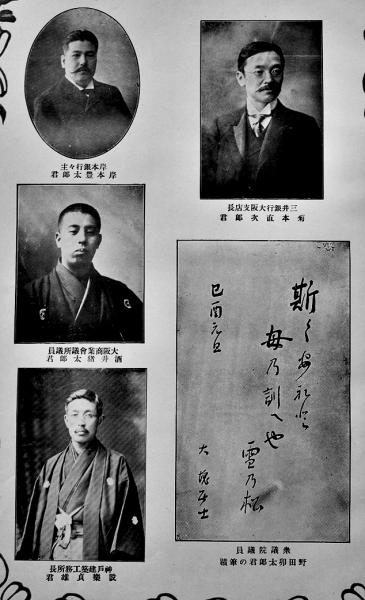 岸本銀行々主
岸本豊太郎君
三井銀行大阪支店長
菊本直次郎君
大阪商業會議所議員
酒井猪太郎君
神戸建築工務所長
設樂貞雄君
斯く
母乃訓へや
雪乃松
己酉元旦
大塊居士
衆議院議員
野田卯太郎君の筆蹟